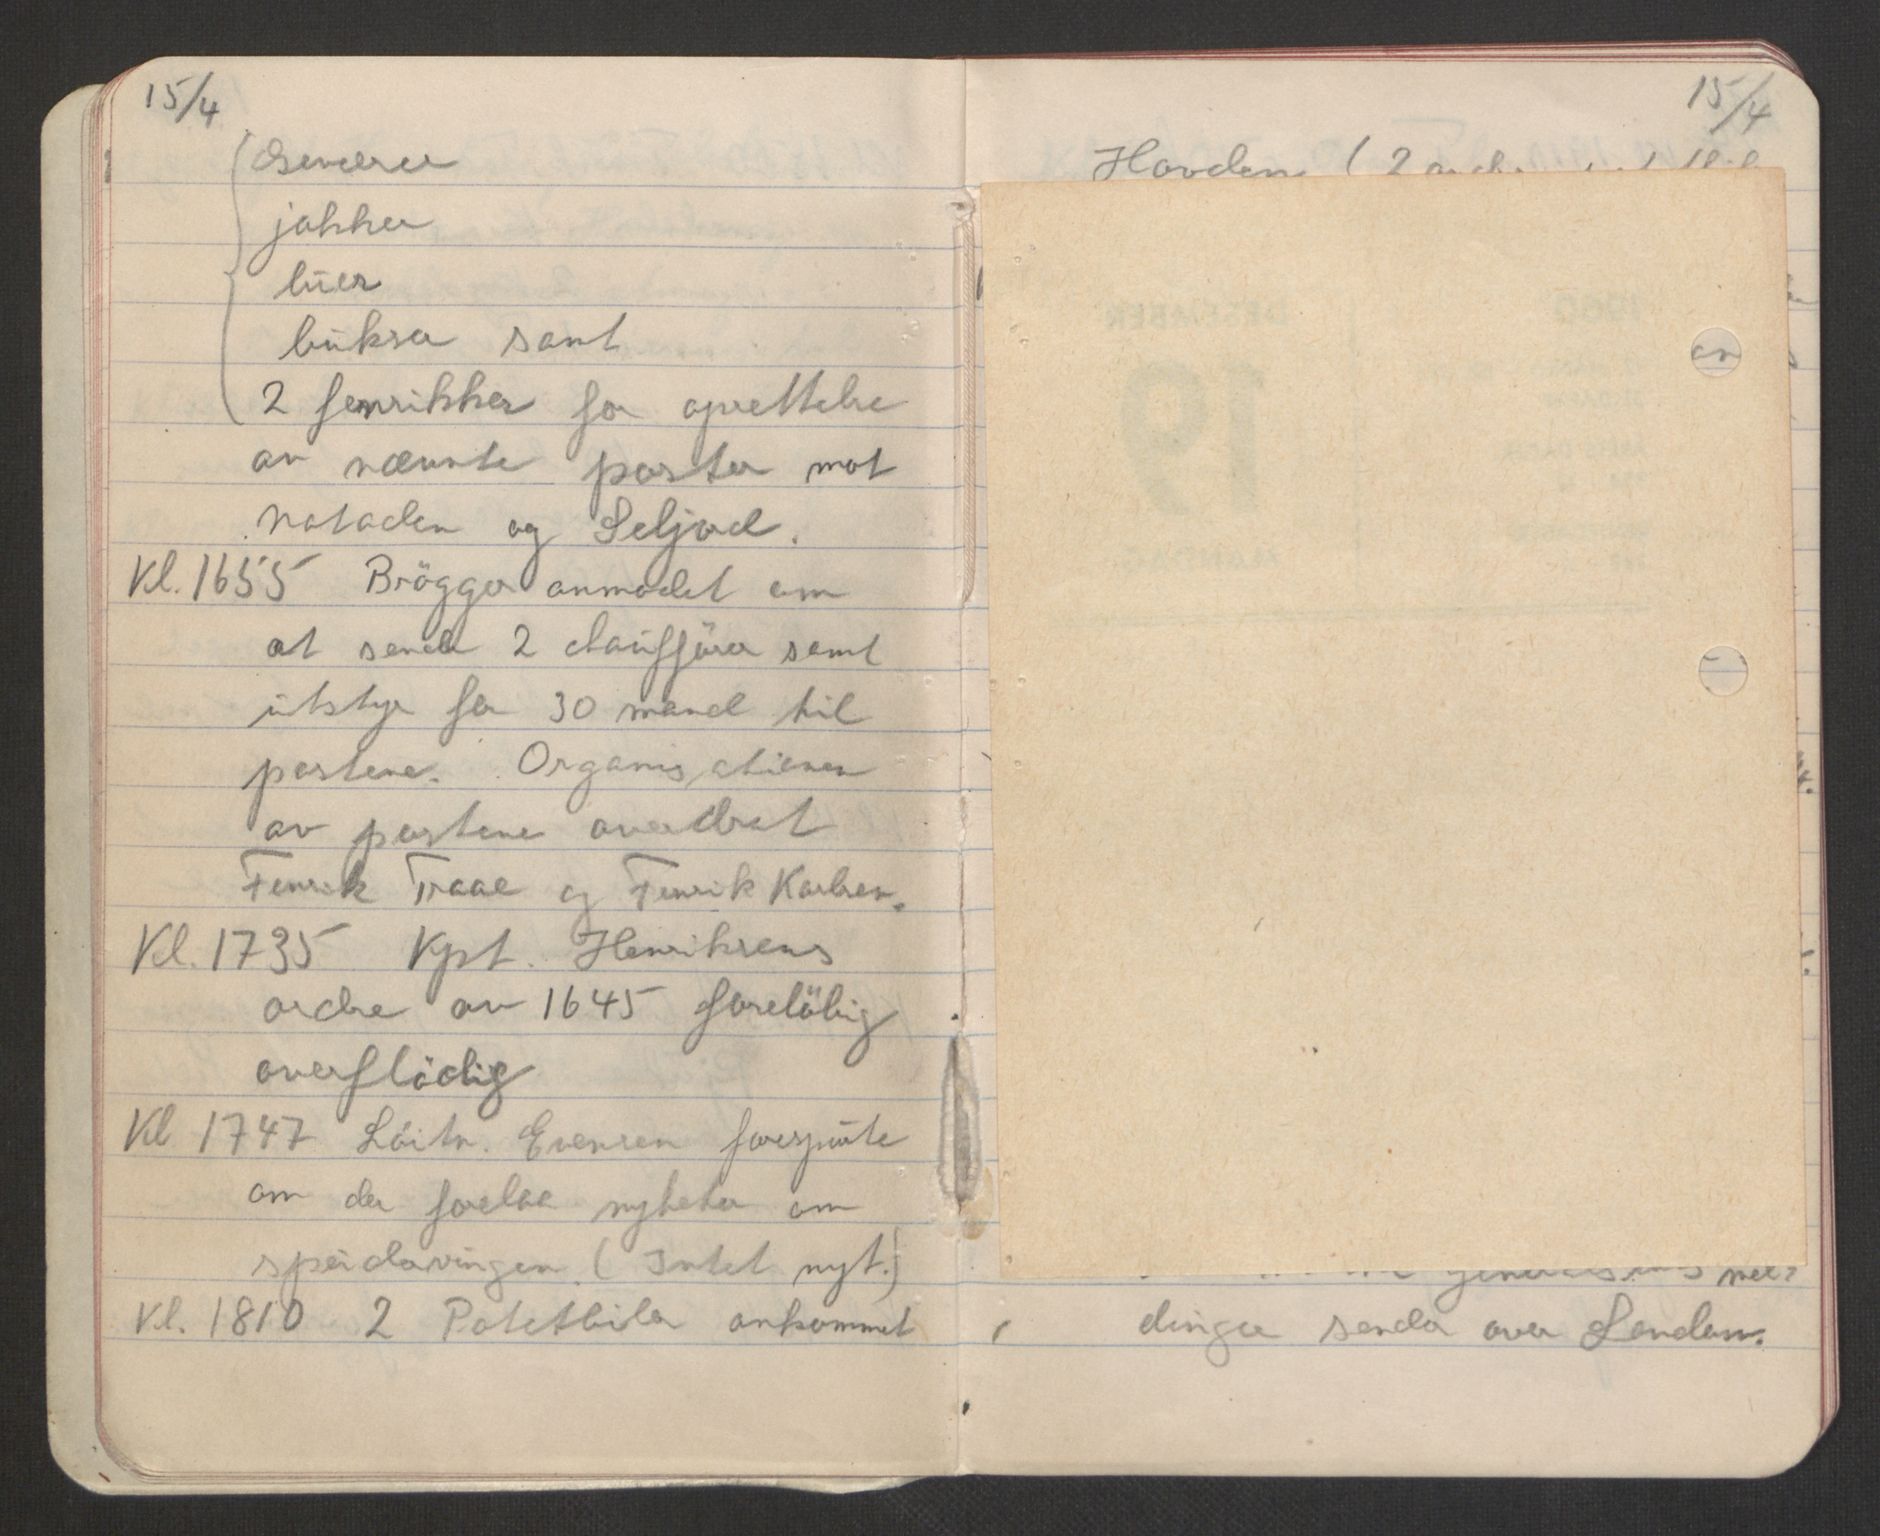 15/4
Geværer
jakker
luer
bukser samt
2 fenrikker for oprettelse
av nævnte poster mot
Notodden og Seljord.
Kl. 1655 Brögger anmodet om
at sende 2 chauffører samt
utstyr for 30 mand til
postene. Organisationen
av postene overdrat
Fenrik Traae og Fenrik Karlsen.
Kl. 1735 Kpt. Henriksens
ordre av 1645 forelöbig
overflödig
Kl 1747 Löitn. Evensen forespurte
om der forelaa nyheter om
speidervingen. (Intet nyt.)
Kl. 1810 2 Potetbiler ankommet
15/4
Hovden (2
1960
DESEMBER
19
MANDAG
av
mel=
dinger sendes over London.